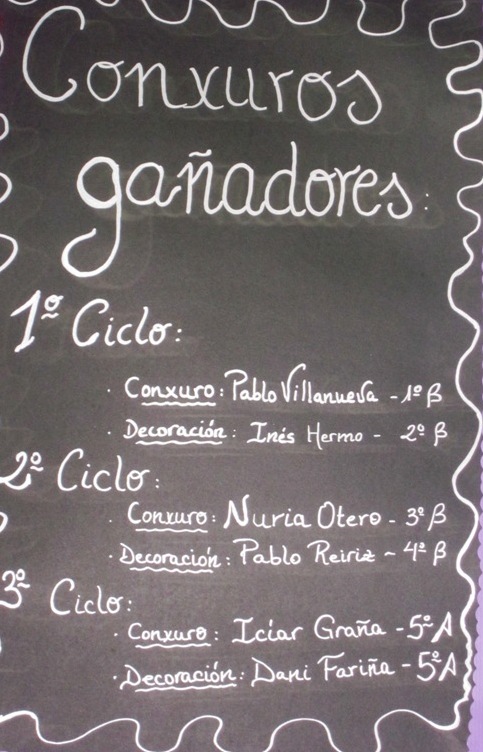 Conxuros
gañadores:
1º Ciclo:
· Conxuro: Pablo Villanueva - 1º B
· Decoración: Inés Hermo - 2º B
2º Ciclo:
· Conxuro: Nuria Otero - 3º B
· Decoración: Pablo Reiriz - 4º B
3º Ciclo:
· Conxuro: Iciar Graña - 5º A
· Decoración: Dani Fariña - 5º A